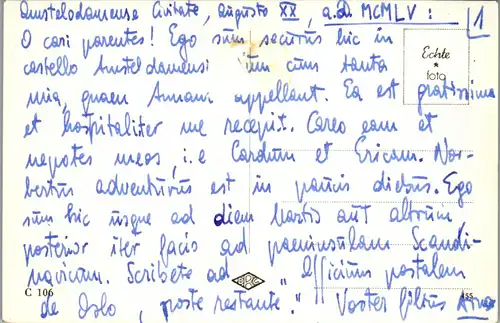 Amstelodamense Civitate, augusto XX, a.d. MCMLV : 1
O cari parentes! Ego sum securus hic in
Echte
castello Amsteldamensi cum tanta
foto
mia, quam Annam appellant. Ea est gratissima
et hospitaliter me recepit. Careo eam et
nepotes meos, i.e Carolum et Ericum. Nor-
bertus adventurus est in paucis diebus. Ego
sum hic usque ad diem Martis aut alterum,
posterior iter facio ad paeninsulam Scandi-
navicum. Scribete ad "Officium postalem
C 106
de Oslo, "poste restante". Voster filius